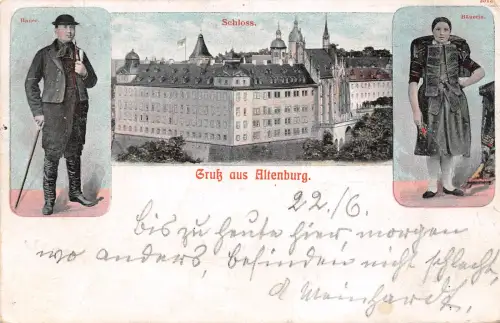 Bauer.
Schloss.
Bäuerin.
Gruß aus Altenburg.
22./6.
Bis zu heute hier, morgen
wo anders, befinden nicht schlecht,
Weinhardt